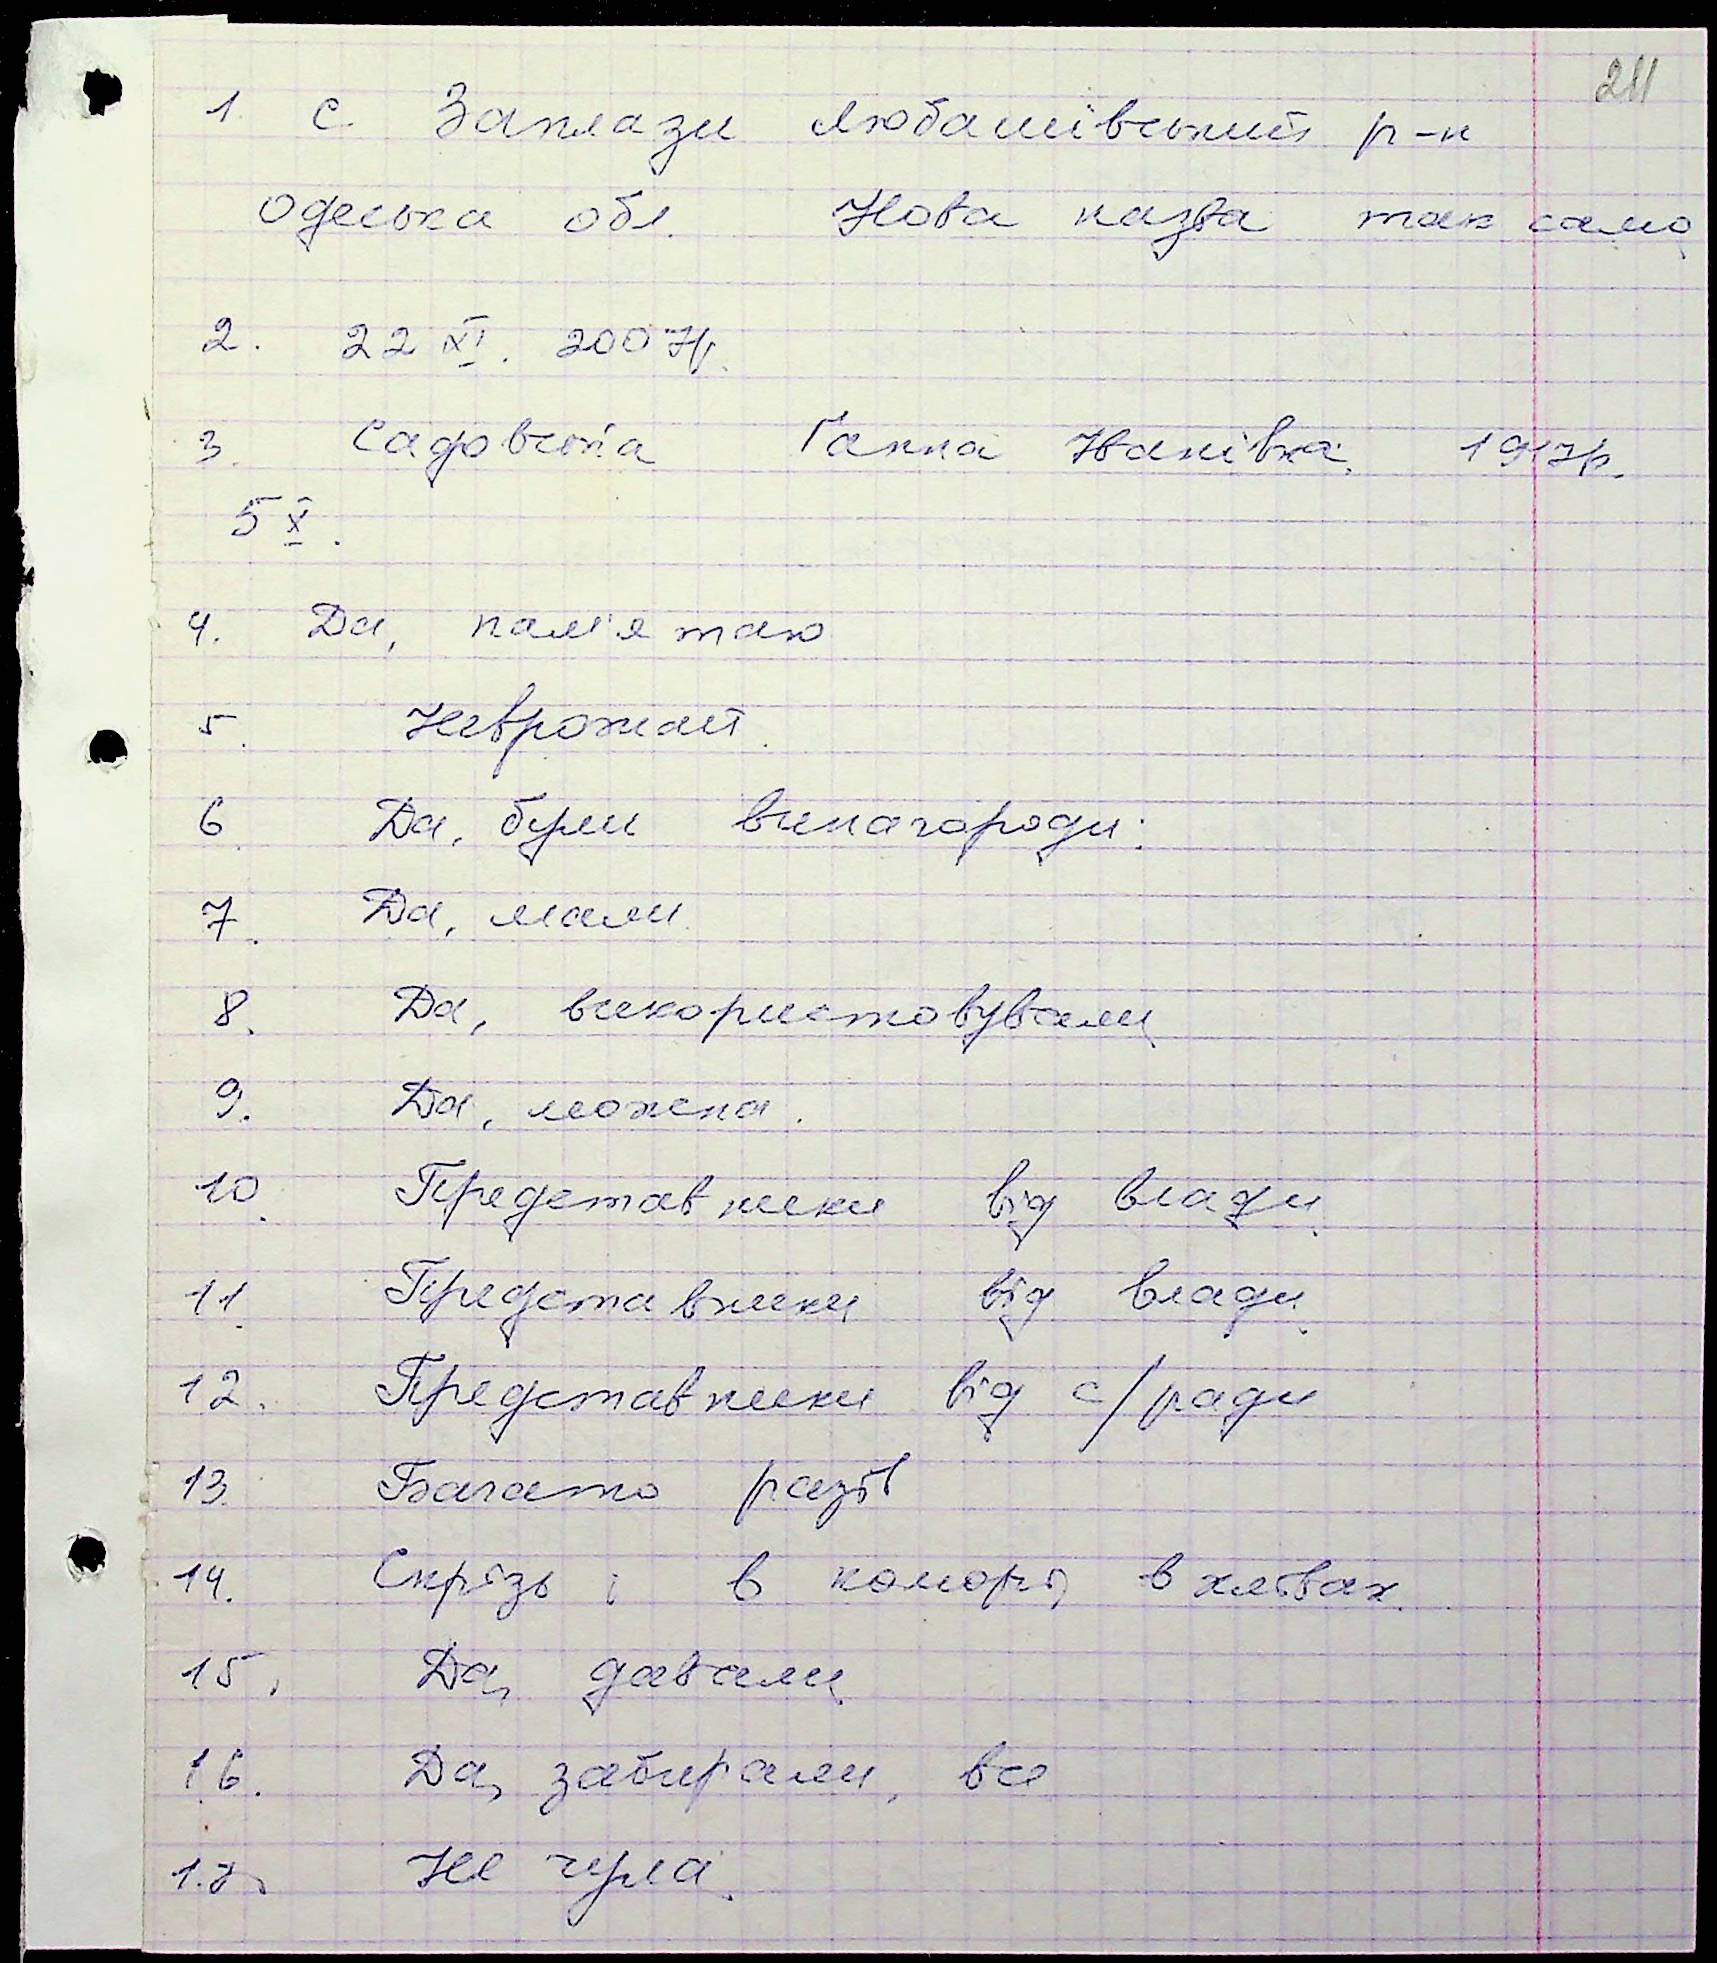 211
1. с. Заплази Любашівський р-н
Одеська обл. Нова назва так само
2. 22 XI. 2007р.
3. Садовська Ганна Іванівна. 1917р.
5 X.
4. Да, пам'ятаю
5. Неврожай.
6. Да, були винагороди.
7. Да, мали.
8. Да, використовували
9. Да, можна.
10. Представники від влади.
11. Представники від влади.
12. Представники від с/ради
13. Багато разів
14. Скрізь і в коморі, в хлівах.
15. Да, давали
16. Да, забирали, все
17. Не чула.